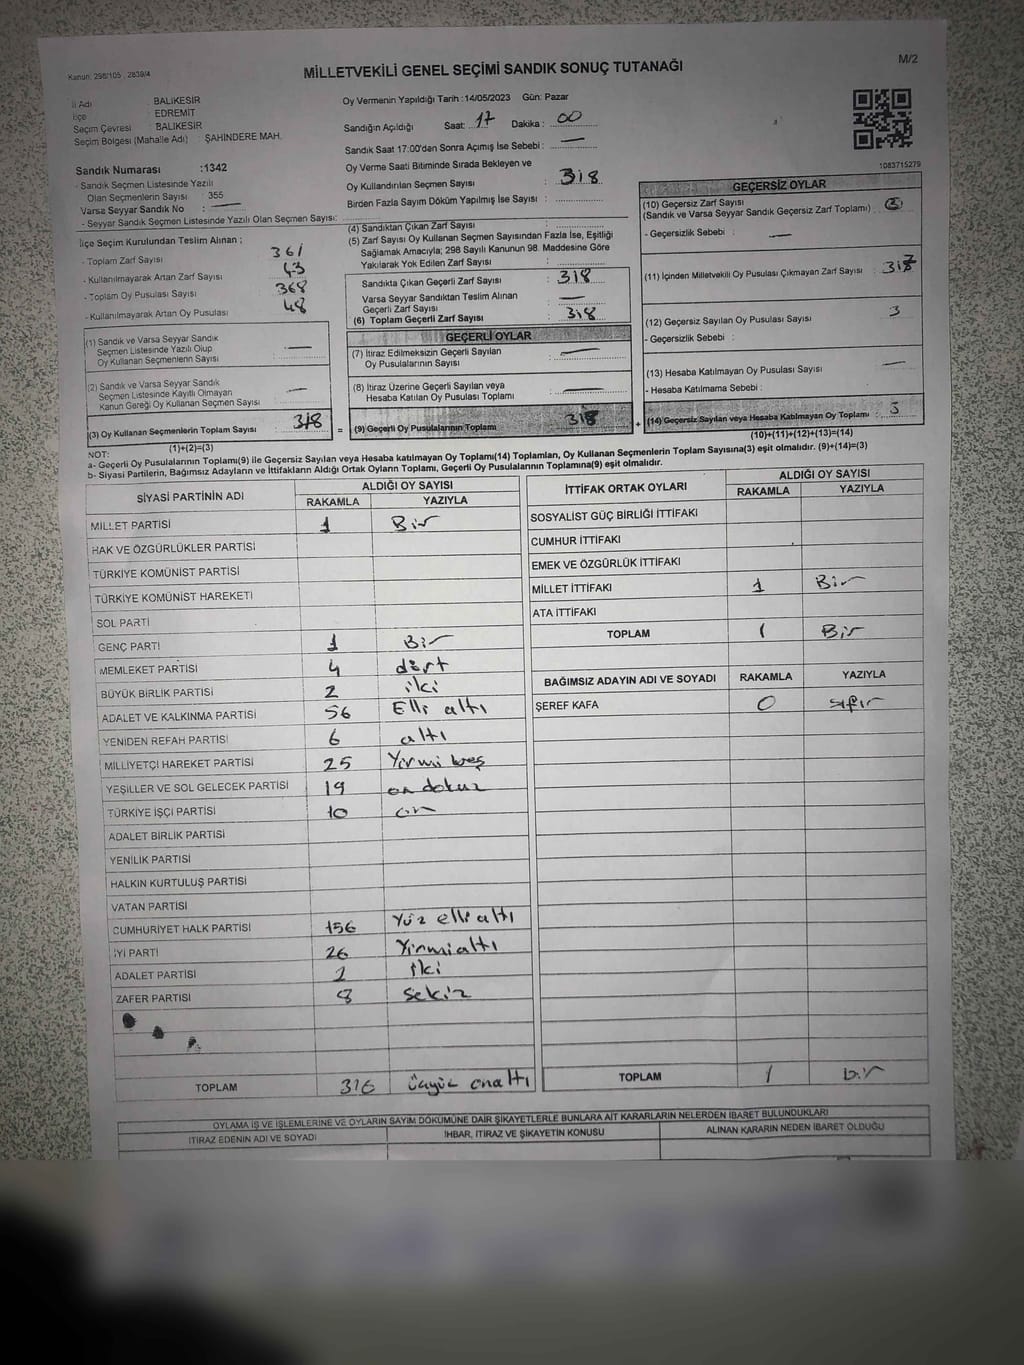 Kanun: 298/105 , 2839/4
MİLLETVEKİLİ GENEL SEÇİMİ SANDIK SONUÇ TUTANAĞI
M/2
İl Adı : BALIKESİR
İlçe : EDREMİT
Seçim Çevresi : BALIKESİR
Seçim Bölgesi (Mahalle Adı) : ŞAHİNDERE MAH.
Sandık Numarası :1342
- Sandık Seçmen Listesinde Yazılı
Olan Seçmenlerin Sayısı : 355
Varsa Seyyar Sandık No :
- Seyyar Sandık Seçmen Listesinde Yazılı Olan Seçmen Sayısı:
Oy Vermenin Yapıldığı Tarih :14/05/2023 Gün: Pazar
Sandığın Açıldığı Saat: 17 Dakika : 00
Sandık Saat 17:00'dan Sonra Açımış İse Sebebi : —
Oy Verme Saati Bitiminde Sırada Bekleyen ve
Oy Kullandırılan Seçmen Sayısı : 318
Birden Fazla Sayım Döküm Yapılmış İse Sayısı :
1083715279
İlçe Seçim Kurulundan Teslim Alınan ;
- Toplam Zarf Sayısı 361
- Kullanılmayarak Artan Zarf Sayısı 43
- Toplam Oy Pusulası Sayısı 368
- Kullanılmayarak Artan Oy Pusulası 48
(1) Sandık ve Varsa Seyyar Sandık
Seçmen Listesinde Yazılı Olup
Oy Kullanan Seçmenlerin Sayısı : —
(2) Sandık ve Varsa Seyyar Sandık
Seçmen Listesinde Kayıtlı Olmayan
Kanun Gereği Oy Kullanan Seçmen Sayısı : —
(3) Oy Kullanan Seçmenlerin Toplam Sayısı : 318
(1)+(2)=(3)
(4) Sandıktan Çıkan Zarf Sayısı :
(5) Zarf Sayısı Oy Kullanan Seçmen Sayısından Fazla İse, Eşitliği
Sağlamak Amacıyla; 298 Sayılı Kanunun 98. Maddesine Göre
Yakılarak Yok Edilen Zarf Sayısı :
Sandıkta Çıkan Geçerli Zarf Sayısı : 318
Varsa Seyyar Sandıktan Teslim Alınan
Geçerli Zarf Sayısı : —
(6) Toplam Geçerli Zarf Sayısı : 318
GEÇERLİ OYLAR
(7) İtiraz Edilmeksizin Geçerli Sayılan
Oy Pusulalarının Sayısı : —
(8) İtiraz Üzerine Geçerli Sayılan veya
Hesaba Katılan Oy Pusulası Toplamı : —
= (9) Geçerli Oy Pusulalarının Toplamı : 318
GEÇERSİZ OYLAR
(10) Geçersiz Zarf Sayısı
(Sandık ve Varsa Seyyar Sandık Geçersiz Zarf Toplamı) : 3
- Geçersizlik Sebebi : —
(11) İçinden Milletvekili Oy Pusulası Çıkmayan Zarf Sayısı :
(12) Geçersiz Sayılan Oy Pusulası Sayısı : 3
- Geçersizlik Sebebi :
(13) Hesaba Katılmayan Oy Pusulası Sayısı : —
- Hesaba Katılmama Sebebi :
+ (14) Geçersiz Sayılan veya Hesaba Katılmayan Oy Toplamı : 3
(10)+(11)+(12)+(13)=(14)
NOT:
a- Geçerli Oy Pusulalarının Toplamı(9) ile Geçersiz Sayılan veya Hesaba katılmayan Oy Toplamı(14) Toplamları, Oy Kullanan Seçmenlerin Toplam Sayısına(3) eşit olmalıdır. (9)+(14)=(3)
b- Siyasi Partilerin, Bağımsız Adayların ve İttifakların Aldığı Ortak Oyların Toplamı, Geçerli Oy Pusulalarının Toplamına(9) eşit olmalıdır.
SİYASİ PARTİNİN ADI ALDIĞI OY SAYISI
RAKAMLA YAZIYLA
MİLLET PARTİSİ 1 Bir
HAK VE ÖZGÜRLÜKLER PARTİSİ
TÜRKİYE KOMÜNİST PARTİSİ
TÜRKİYE KOMÜNİST HAREKETİ
SOL PARTİ
GENÇ PARTİ 1 Bir
MEMLEKET PARTİSİ 4 dört
BÜYÜK BİRLİK PARTİSİ 2 iki
ADALET VE KALKINMA PARTİSİ 56 Elli altı
YENİDEN REFAH PARTİSİ 6 altı
MİLLİYETÇİ HAREKET PARTİSİ 25 Yirmi beş
YEŞİLLER VE SOL GELECEK PARTİSİ 19 on dokuz
TÜRKİYE İŞÇİ PARTİSİ 10 on
ADALET BİRLİK PARTİSİ
YENİLİK PARTİSİ
HALKIN KURTULUŞ PARTİSİ
VATAN PARTİSİ
CUMHURİYET HALK PARTİSİ 156 Yüz elli altı
İYİ PARTİ 26 Yirmialtı
ADALET PARTİSİ 2 iki
ZAFER PARTİSİ 8 Sekiz
TOPLAM 316 üçyüz onaltı
İTTİFAK ORTAK OYLARI ALDIĞI OY SAYISI
RAKAMLA YAZIYLA
SOSYALİST GÜÇ BİRLİĞİ İTTİFAKI
CUMHUR İTTİFAKI
EMEK VE ÖZGÜRLÜK İTTİFAKI
MİLLET İTTİFAKI 1 Bir
ATA İTTİFAKI
TOPLAM 1 Bir
BAĞIMSIZ ADAYIN ADI VE SOYADI RAKAMLA YAZIYLA
ŞEREF KAFA 0 sıfır
TOPLAM 1 bir
OYLAMA İŞ VE İŞLEMLERİNE VE OYLARIN SAYIM DÖKÜMÜNE DAİR ŞİKAYETLERLE BUNLARA AİT KARARLARIN NELERDEN İBARET BULUNDUKLARI
İTİRAZ EDENİN ADI VE SOYADI İHBAR, İTİRAZ VE ŞİKAYETİN KONUSU ALINAN KARARIN NEDEN İBARET OLDUĞU